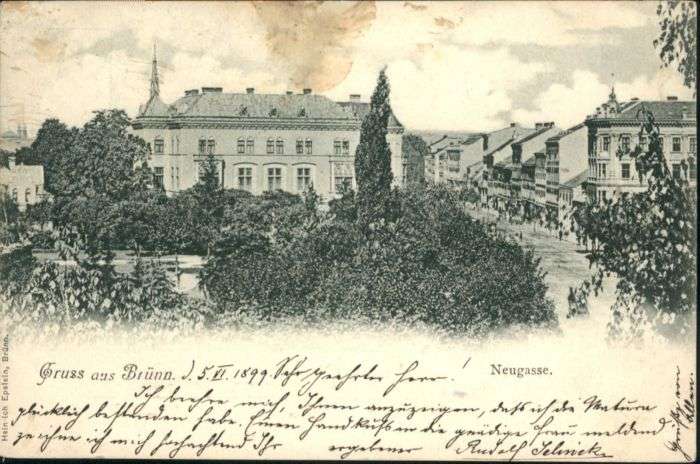 Gruss aus Brünn. d. 5. VI. 1899 Sehr geehrter Herr!
Neugasse.
Ich beehre mich, Ihnen anzuzeigen, dass ich die Matura
glücklich bestanden habe. Einen Handkuss an die gnädige Frau meldend
zeichne ich mich hochachtend Ihr ergebener Rudolf
Grüße von
Heinrich Epstein, Brünn.